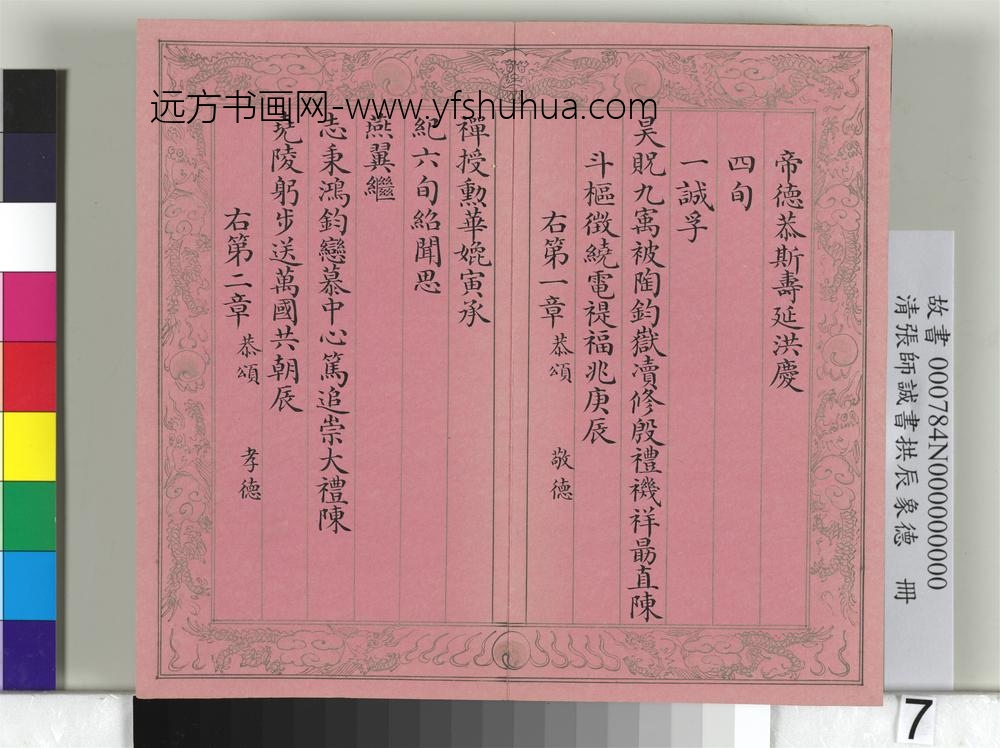 帝德恭斯壽延洪慶
四旬
一誠孚
昊貺九㝢被陶鈞嶽瀆修殷禮禨祥勗直陳
斗樞徵繞電禔福兆庚辰
右第一章 恭頌 敬德
禪授勲華媲寅承
紀六旬紹聞思
燕翼繼
志秉鴻鈞戀慕中心篤追崇大禮陳
堯陵躬步送萬國共朝辰
右第二章 恭頌 孝德
远方书画网-www.yfshuhua.com
故書 000784N000000000
清張師誠書拱辰象德 冊
7